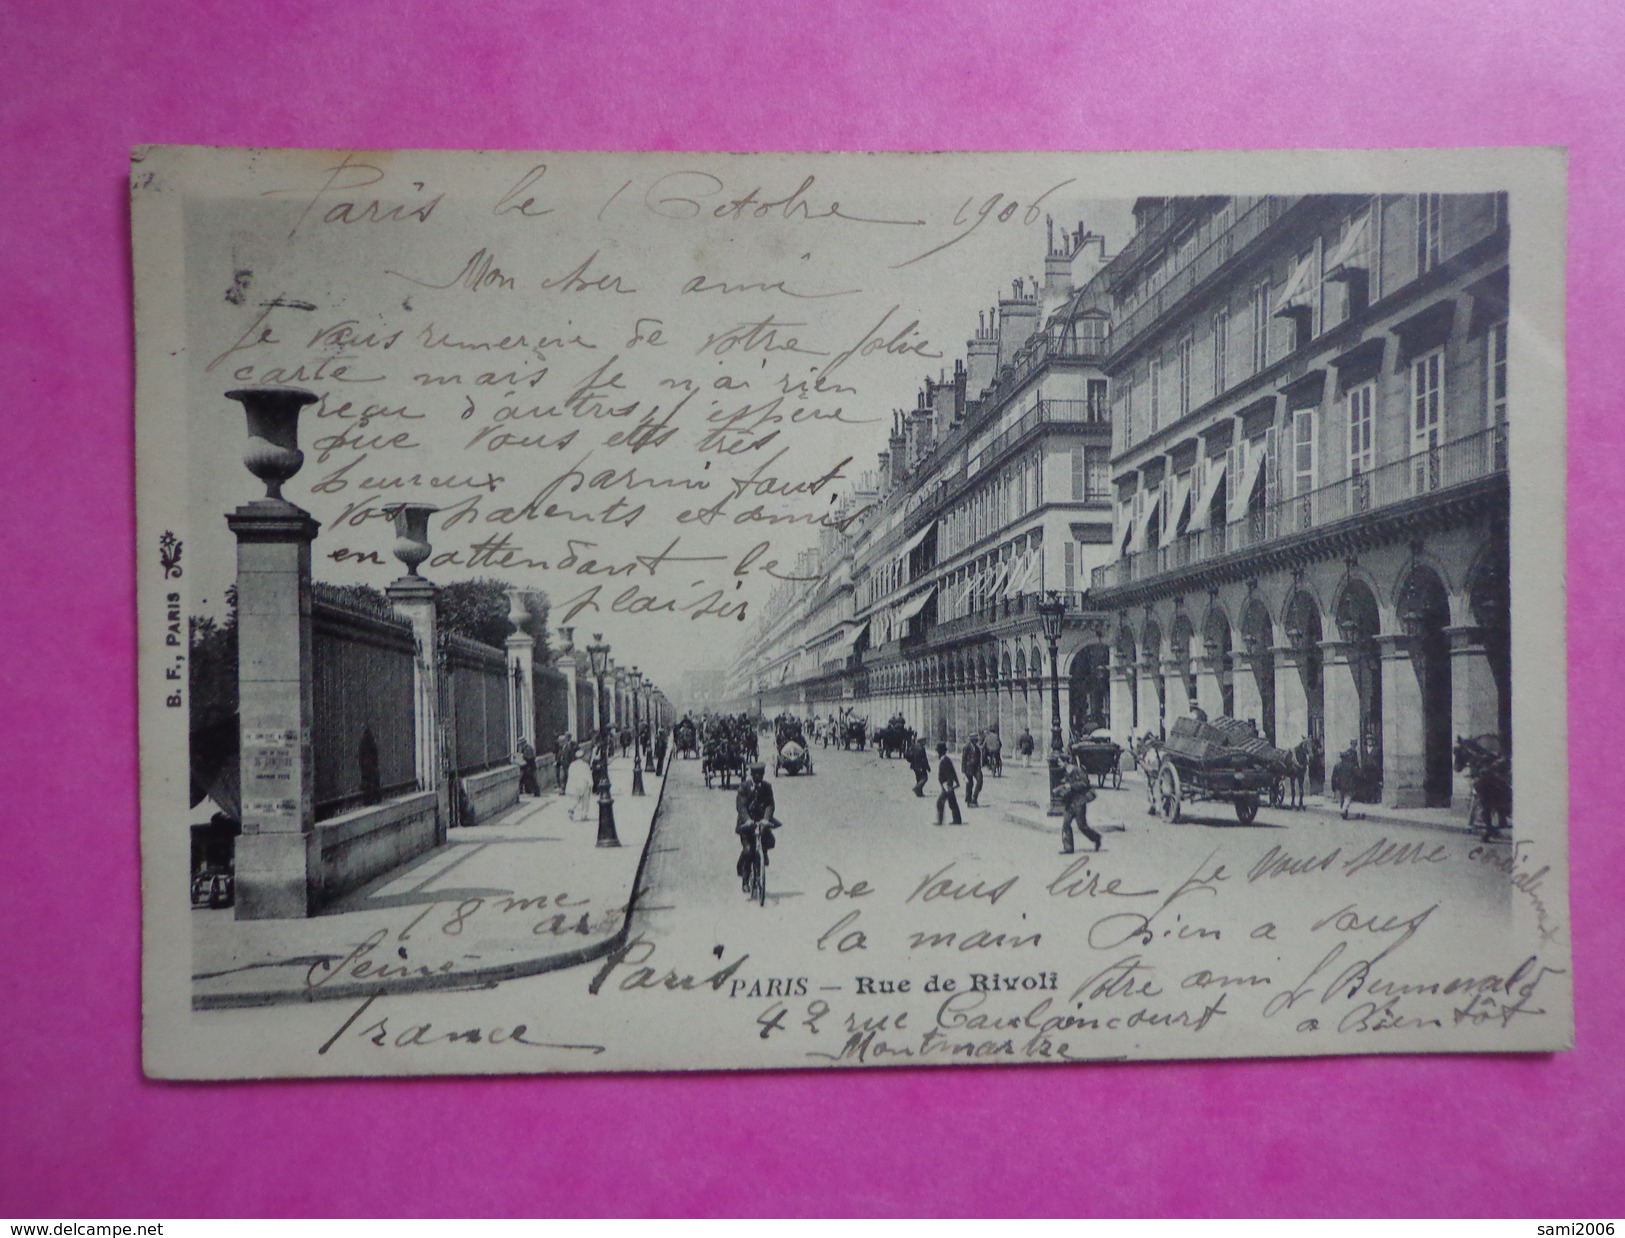 Paris le 1 Octobre 1906
Mon cher ami
Je vous remercie de votre jolie
carte mais je n'ai rien
reçu d'autres, j'espère
que vous etes très
heureux parmi tout
vos parents et amis
en attendant le
plaisir
de vous lire je vous serre cordialement
la main Bien a vous
Votre ami J Bermwald
a Bientôt
42 rue Caulaincourt
Montmartre
18me ar
Paris
Seine
France
PARIS — Rue de Rivoli
B. F., PARIS
delcampe.net
sami2006